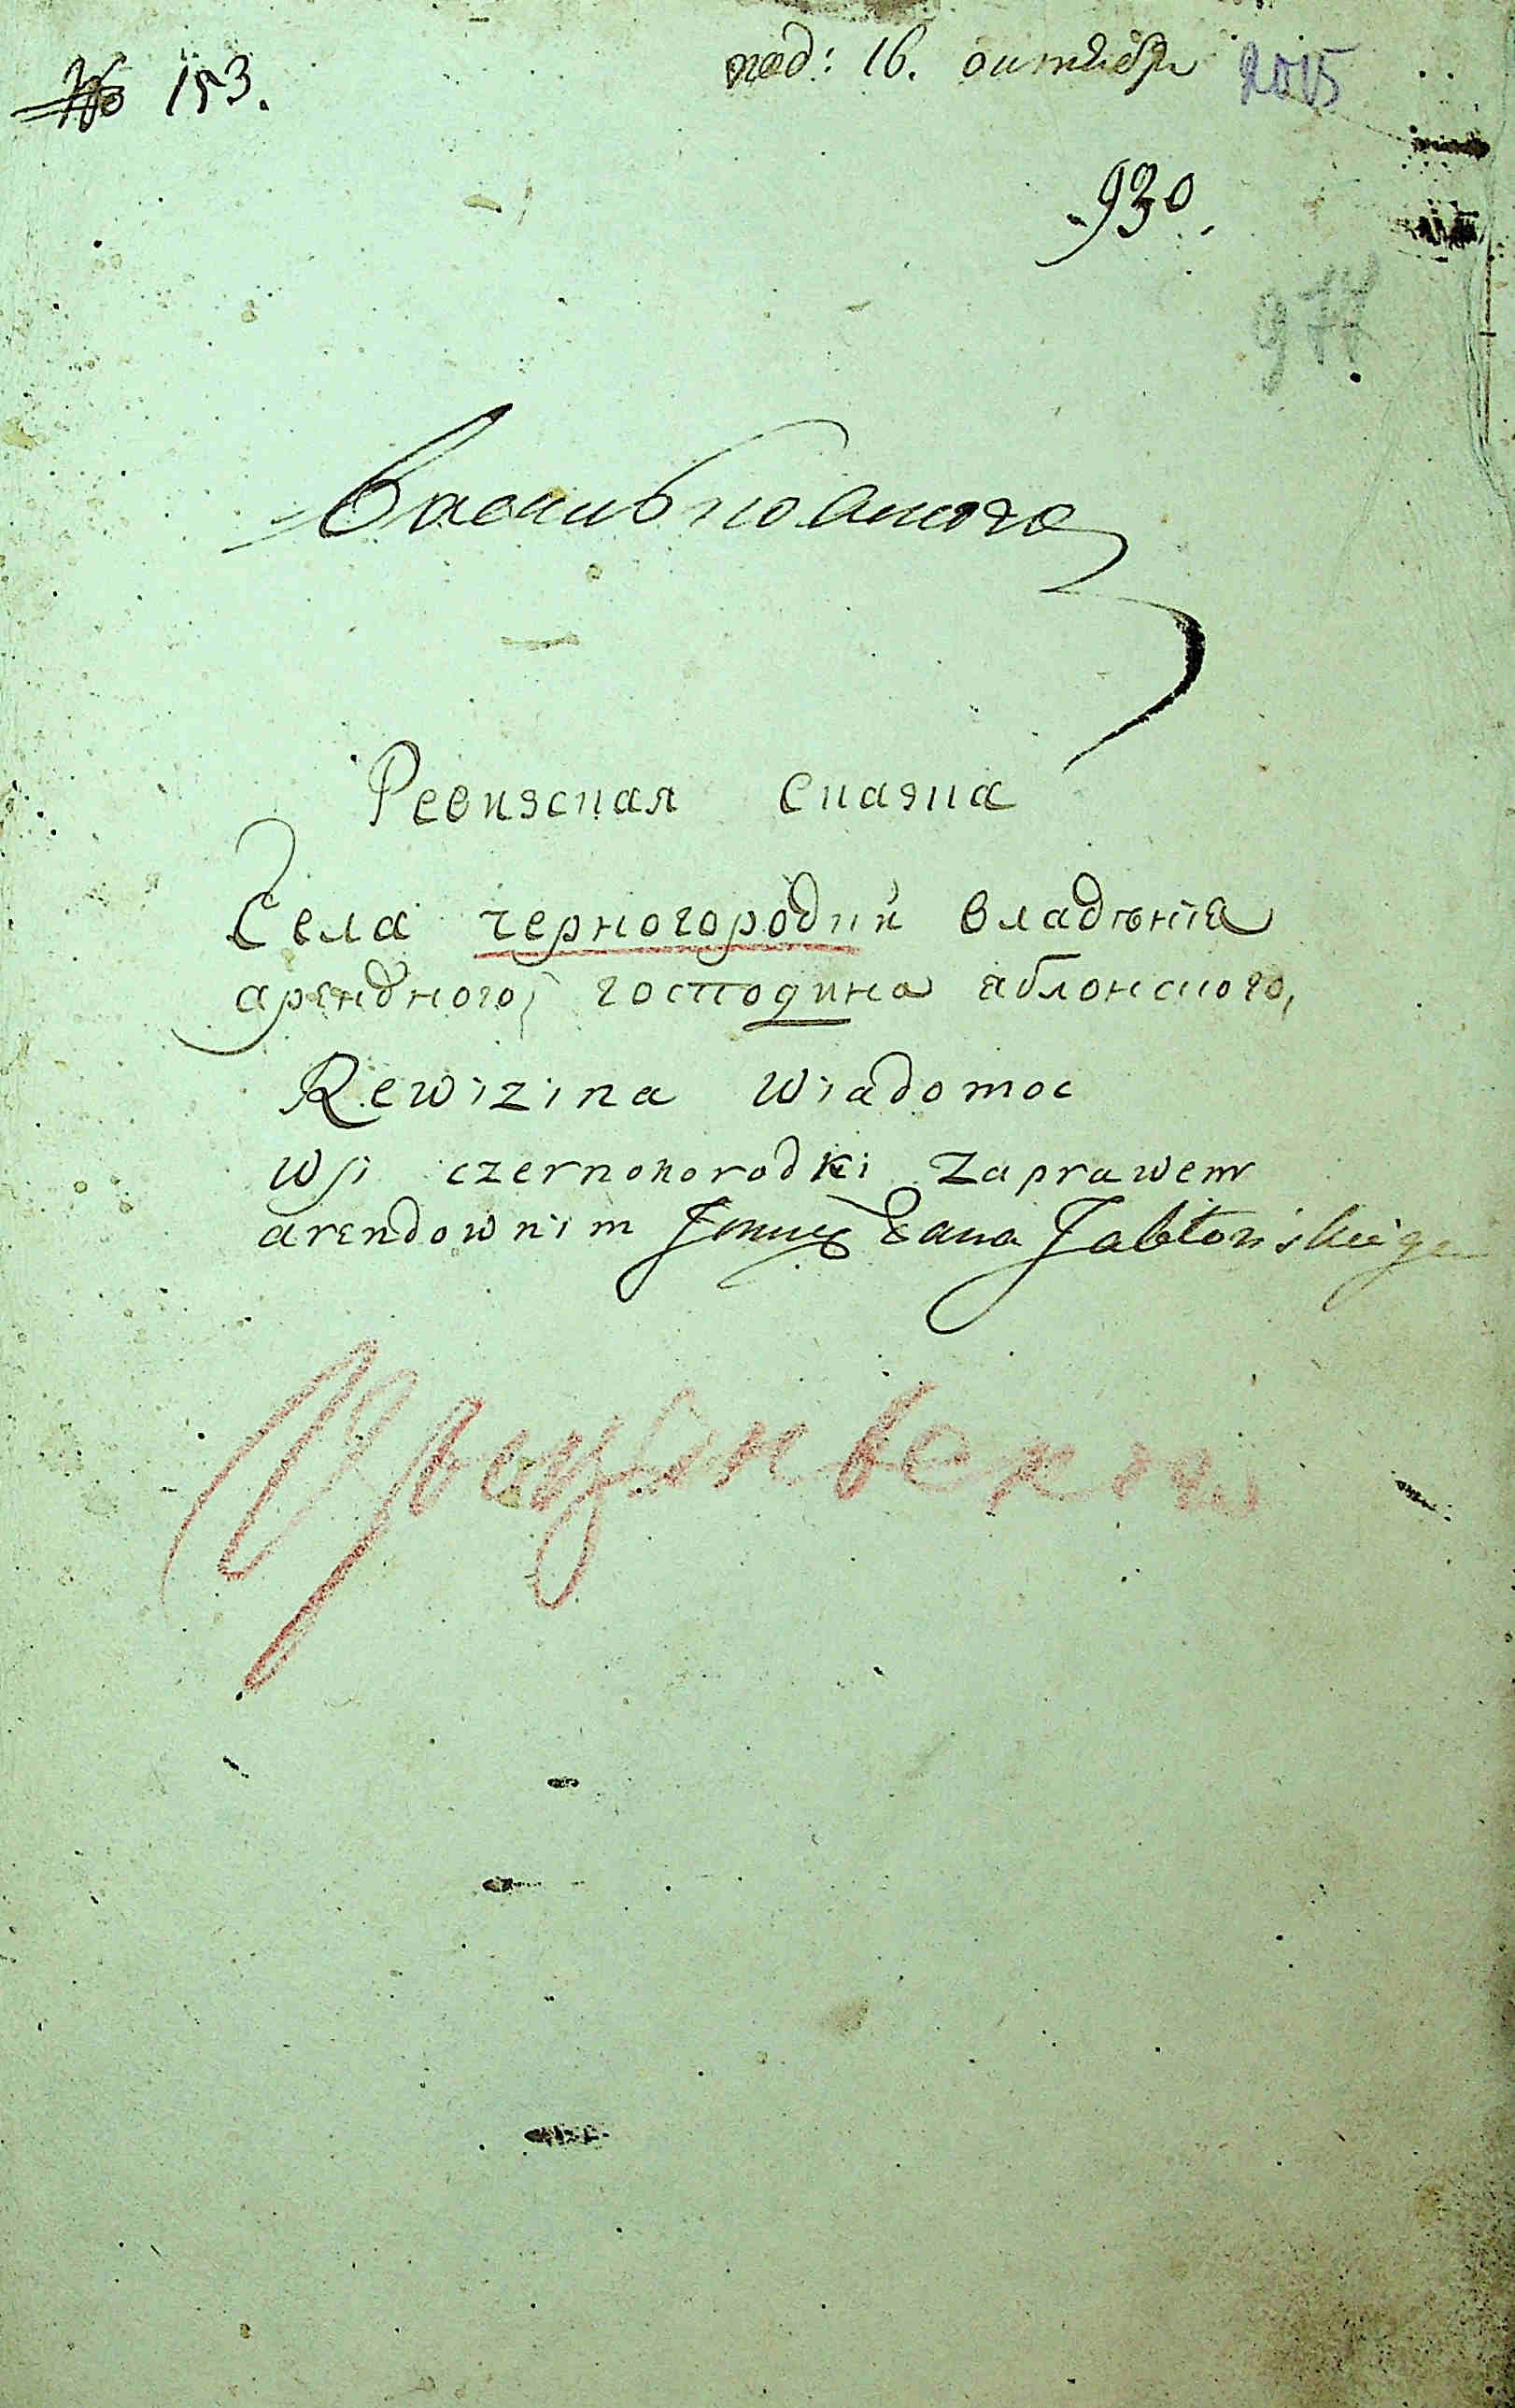 № 153.
под: 16. октября 2015
930.
977
Васильковского
Ревизская Сказка
Села черногородки владѣнія
арендного господина яблонского,
Rewizina wiadomoc
wsi czernohorodki zaprawem
arendownim Jmuę Pana Jabłońskiego